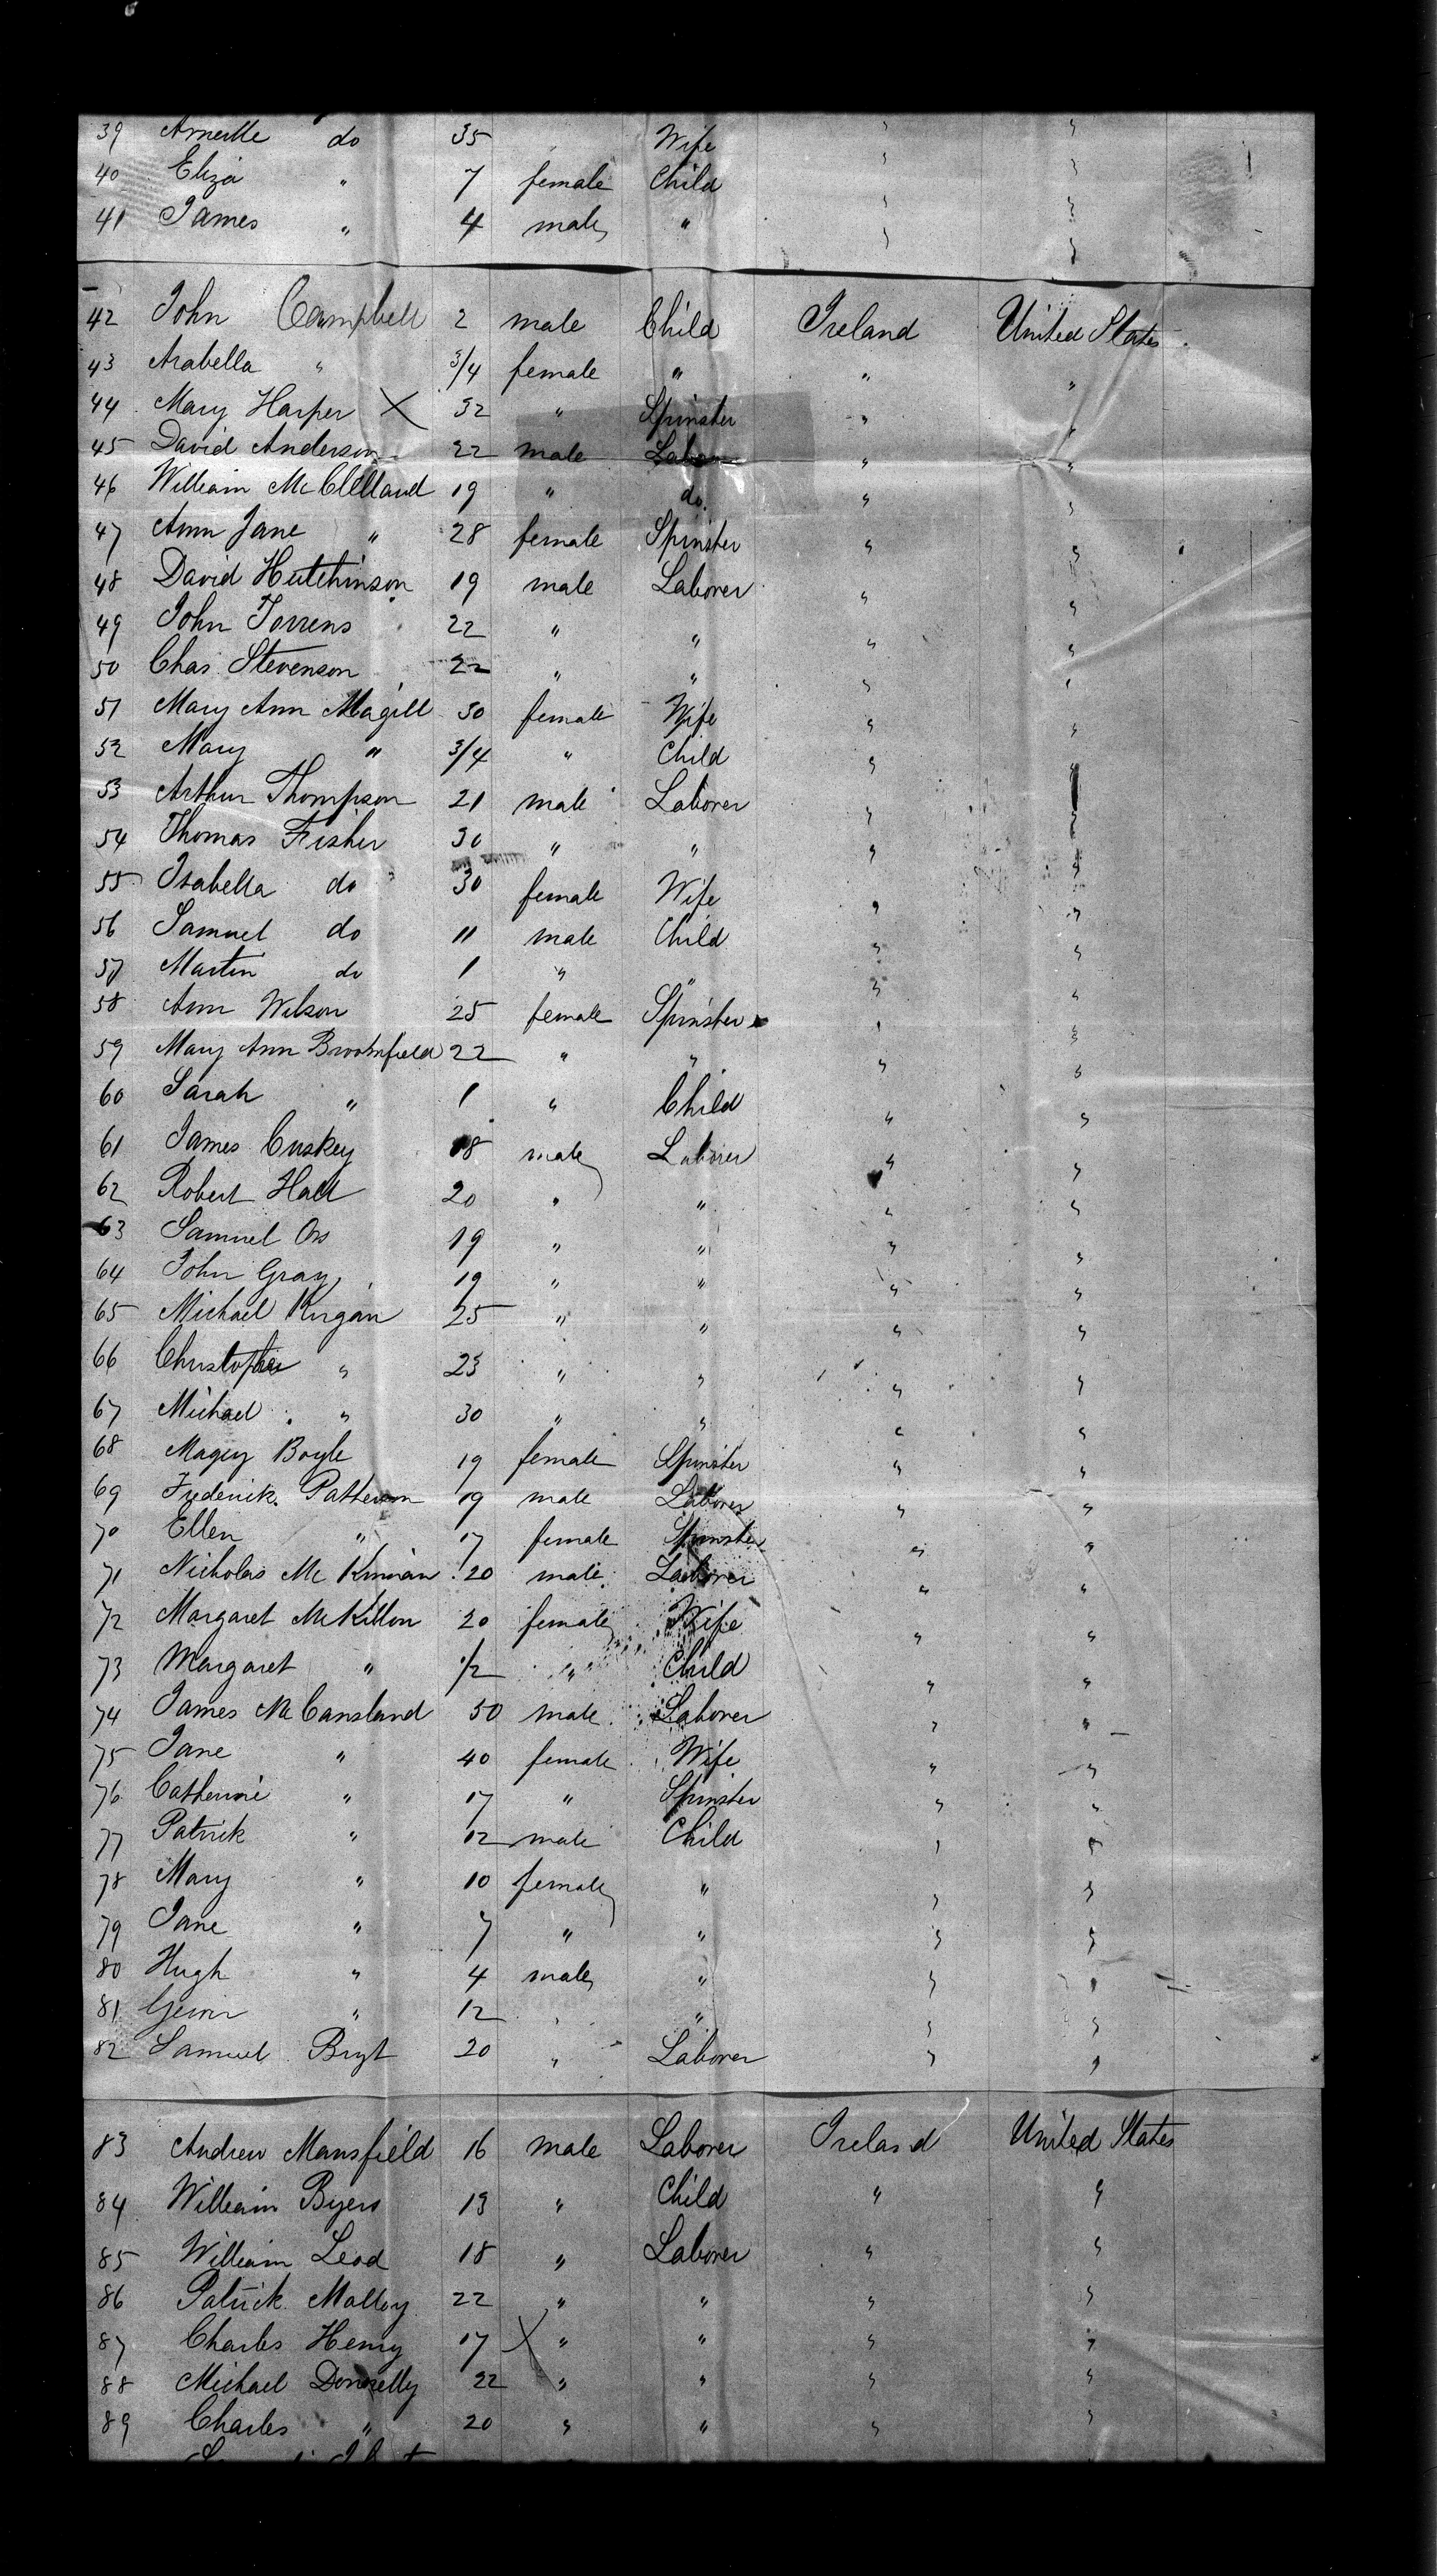 39 do 35 Wife " "
40 Eliza " 7 female Child " "
41 James " 4 male " " "
42 John Campbell 2 male Child Ireland United States
43 Arabella " 3/4 female " " "
44 Mary Harper X 32 " Spinster " "
45 David Anderson 22 male Labor " "
46 William McClelland 19 " do " "
47 Ann Jane " 28 female Spinster " "
48 David Hutchinson 19 male Laborer " "
49 John Torrens 22 " " " "
50 Chas Stevenson 22 " " " "
51 Mary Ann Magill 30 female Wife " "
52 Mary " 3/4 " Child " "
53 Arthur Thompson 21 male Laborer " "
54 Thomas Fisher 30 " " " "
55 Isabella do 30 female Wife " "
56 Samuel do 11 male Child " "
57 Martin do 1 " " " "
58 Ann Wilson 25 female Spinster " "
59 Mary Ann 22 " " " "
60 Sarah " 1 " Child " "
61 James Cuskey 18 male Laborer " "
62 Robert Hall 20 " " " "
63 Samuel Orr 19 " " " "
64 John Gray 19 " " " "
65 Michael Kirgan 25 " " " "
66 Christopher " 23 " " " "
67 Michael " 30 " " " "
68 Boyle 19 female Spinster " "
69 Frederick Patterson 19 male Laborer " "
70 Ellen " 17 female Spinster " "
71 Nicholas 20 male Laborer " "
72 Margaret McKillon 20 female Wife " "
73 Margaret " 1/2 " Child " "
74 James McCansland 50 male Laborer " "
75 Jane " 40 female Wife " "
76 Catherine " 17 " Spinster " "
77 Patrick " 12 male Child " "
78 Mary " 10 female " " "
79 Jane " 7 " " " "
80 Hugh " 4 male " " "
81 " 12 " " " "
82 Samuel 20 " Laborer " "
83 Andrew Mansfield 16 male Laborer Ireland United States
84 William Byers 13 " Child " "
85 William Leod 18 " Laborer " "
86 Patrick Malloy 22 " " " "
87 Charles Henry 17 X " " " "
88 Michael Donnelly 22 " " " "
89 Charles " 20 " " " "